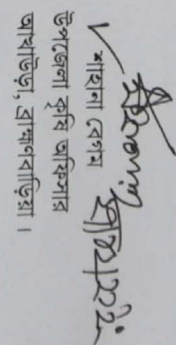 শাহানা বেগম
উপজেলা কৃষি অফিসার
আখাউড়া, ব্রাহ্মণবাড়িয়া।